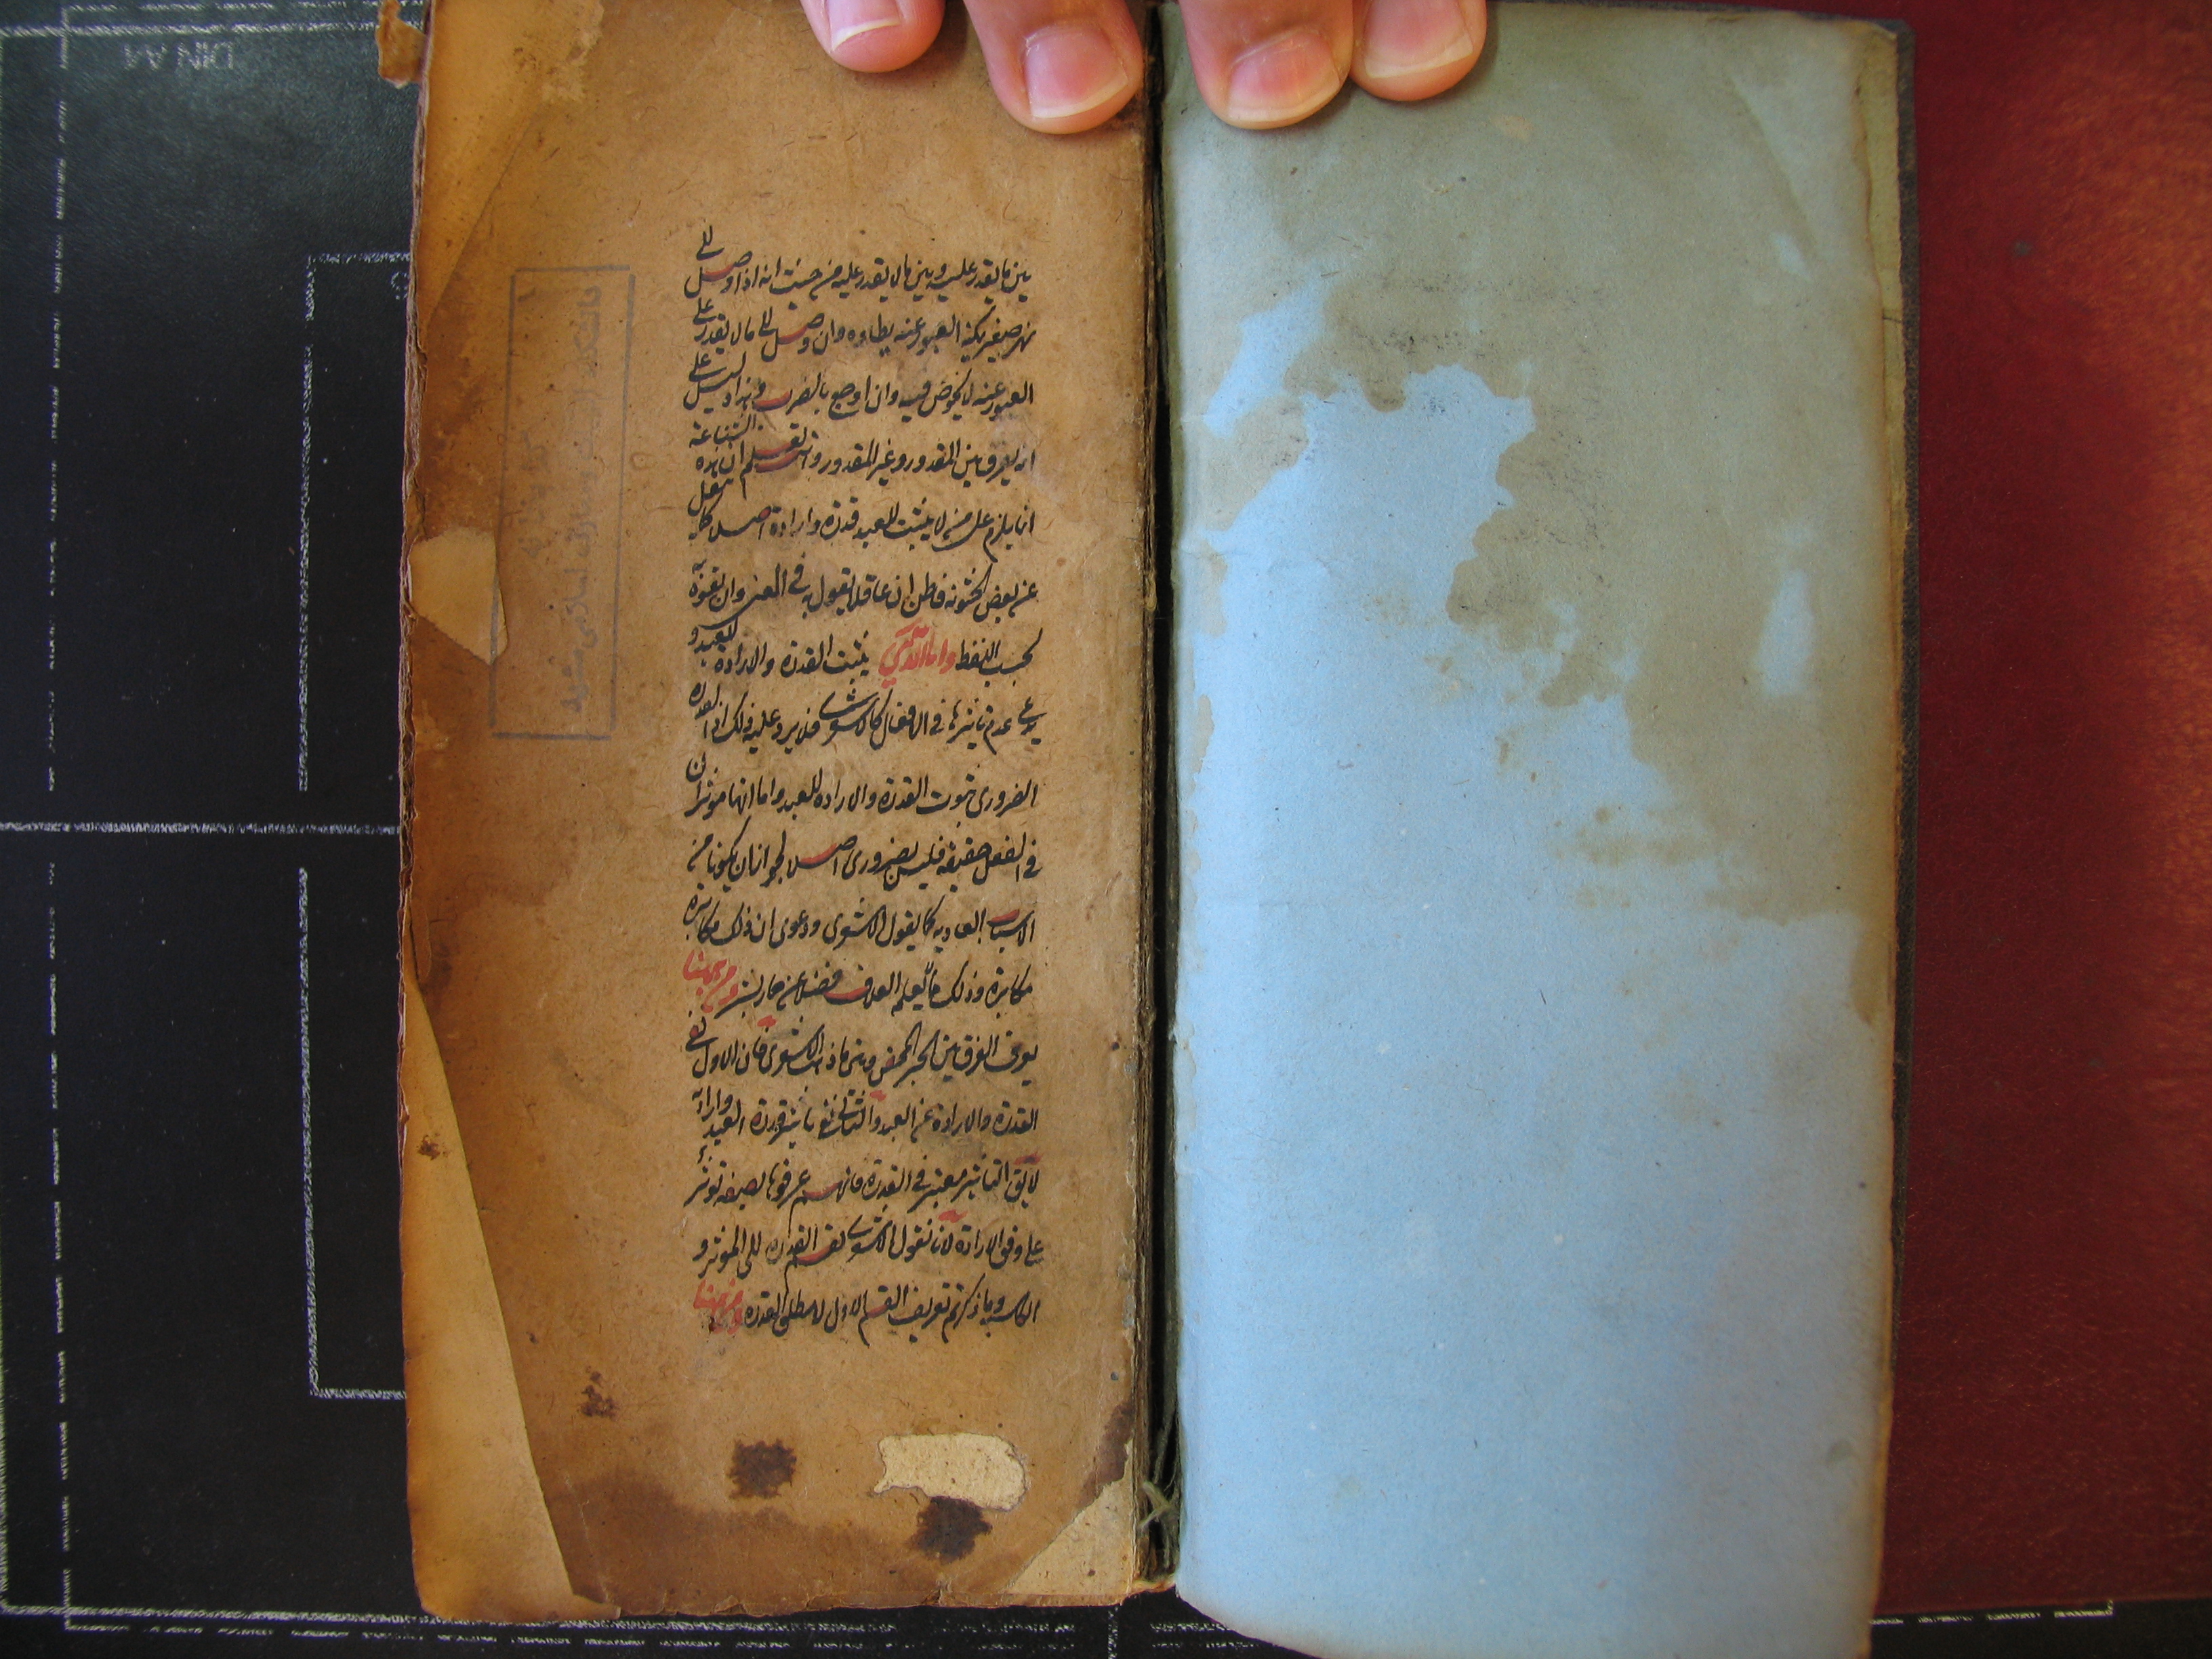 بين ما يقدر عليه وبين ما لا يقدر عليه من حيث انه اذا وصل الى
نهر صغير يمكنه العبور عنه يطاوه وان وصل الى ما لا يقدر على
العبور عنه لا يخوض فيه وان اوجع بالضرب وهذا دليل على
انه يفرق بين المقدور وغير المقدور وانت تعلم ان هذه الشناعة
انما يلزم على من لا يثبت للعبد قدرة وارادة اصلا كما ينقل
عن بعض الحشوية فاظن ان عاقلا يقول به في المعنى وان تفوه به
بحسب اللفظ واما الذي يثبت القدرة والارادة للعبد و
يدعي عدم تاثيرها في الافعال كالاشعري فلا يرد عليه ذلك اذ القدر
الضروري ثبوت القدرة والارادة للعبد واما انها موثران
في الفعل حقيقة فليس بضروري اصلا لجواز ان يكونا من
الاسباب العادية كما يقول الاشعري ودعوى ان ذلك مكابرة
مكابرة وذلك مما يعلمه العلاف فضلا عن مارس ومن ههنا
يعرف الفرق بين الجبر المحض وبين ما ذهب الاشعري فان الاول نفي
القدرة والارادة عن العبد والثاني نفي تاثير قدرة العبد وارادته
لا يق التاثير معتبر في القدرة فانهم عرفوها بصفة توثر
على وفق الارادة لانا نقول الاشعري يقسم القدرة الى الموثرو
الكاسبة وما ذكرتم تعريف القسم الاول لا مطلق القدرة ومن ههنا